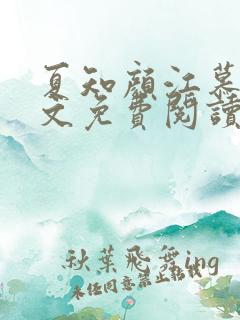 夏知顏江慕
文免費閱讀
秋葉飛舞ing
未经同意禁止转载